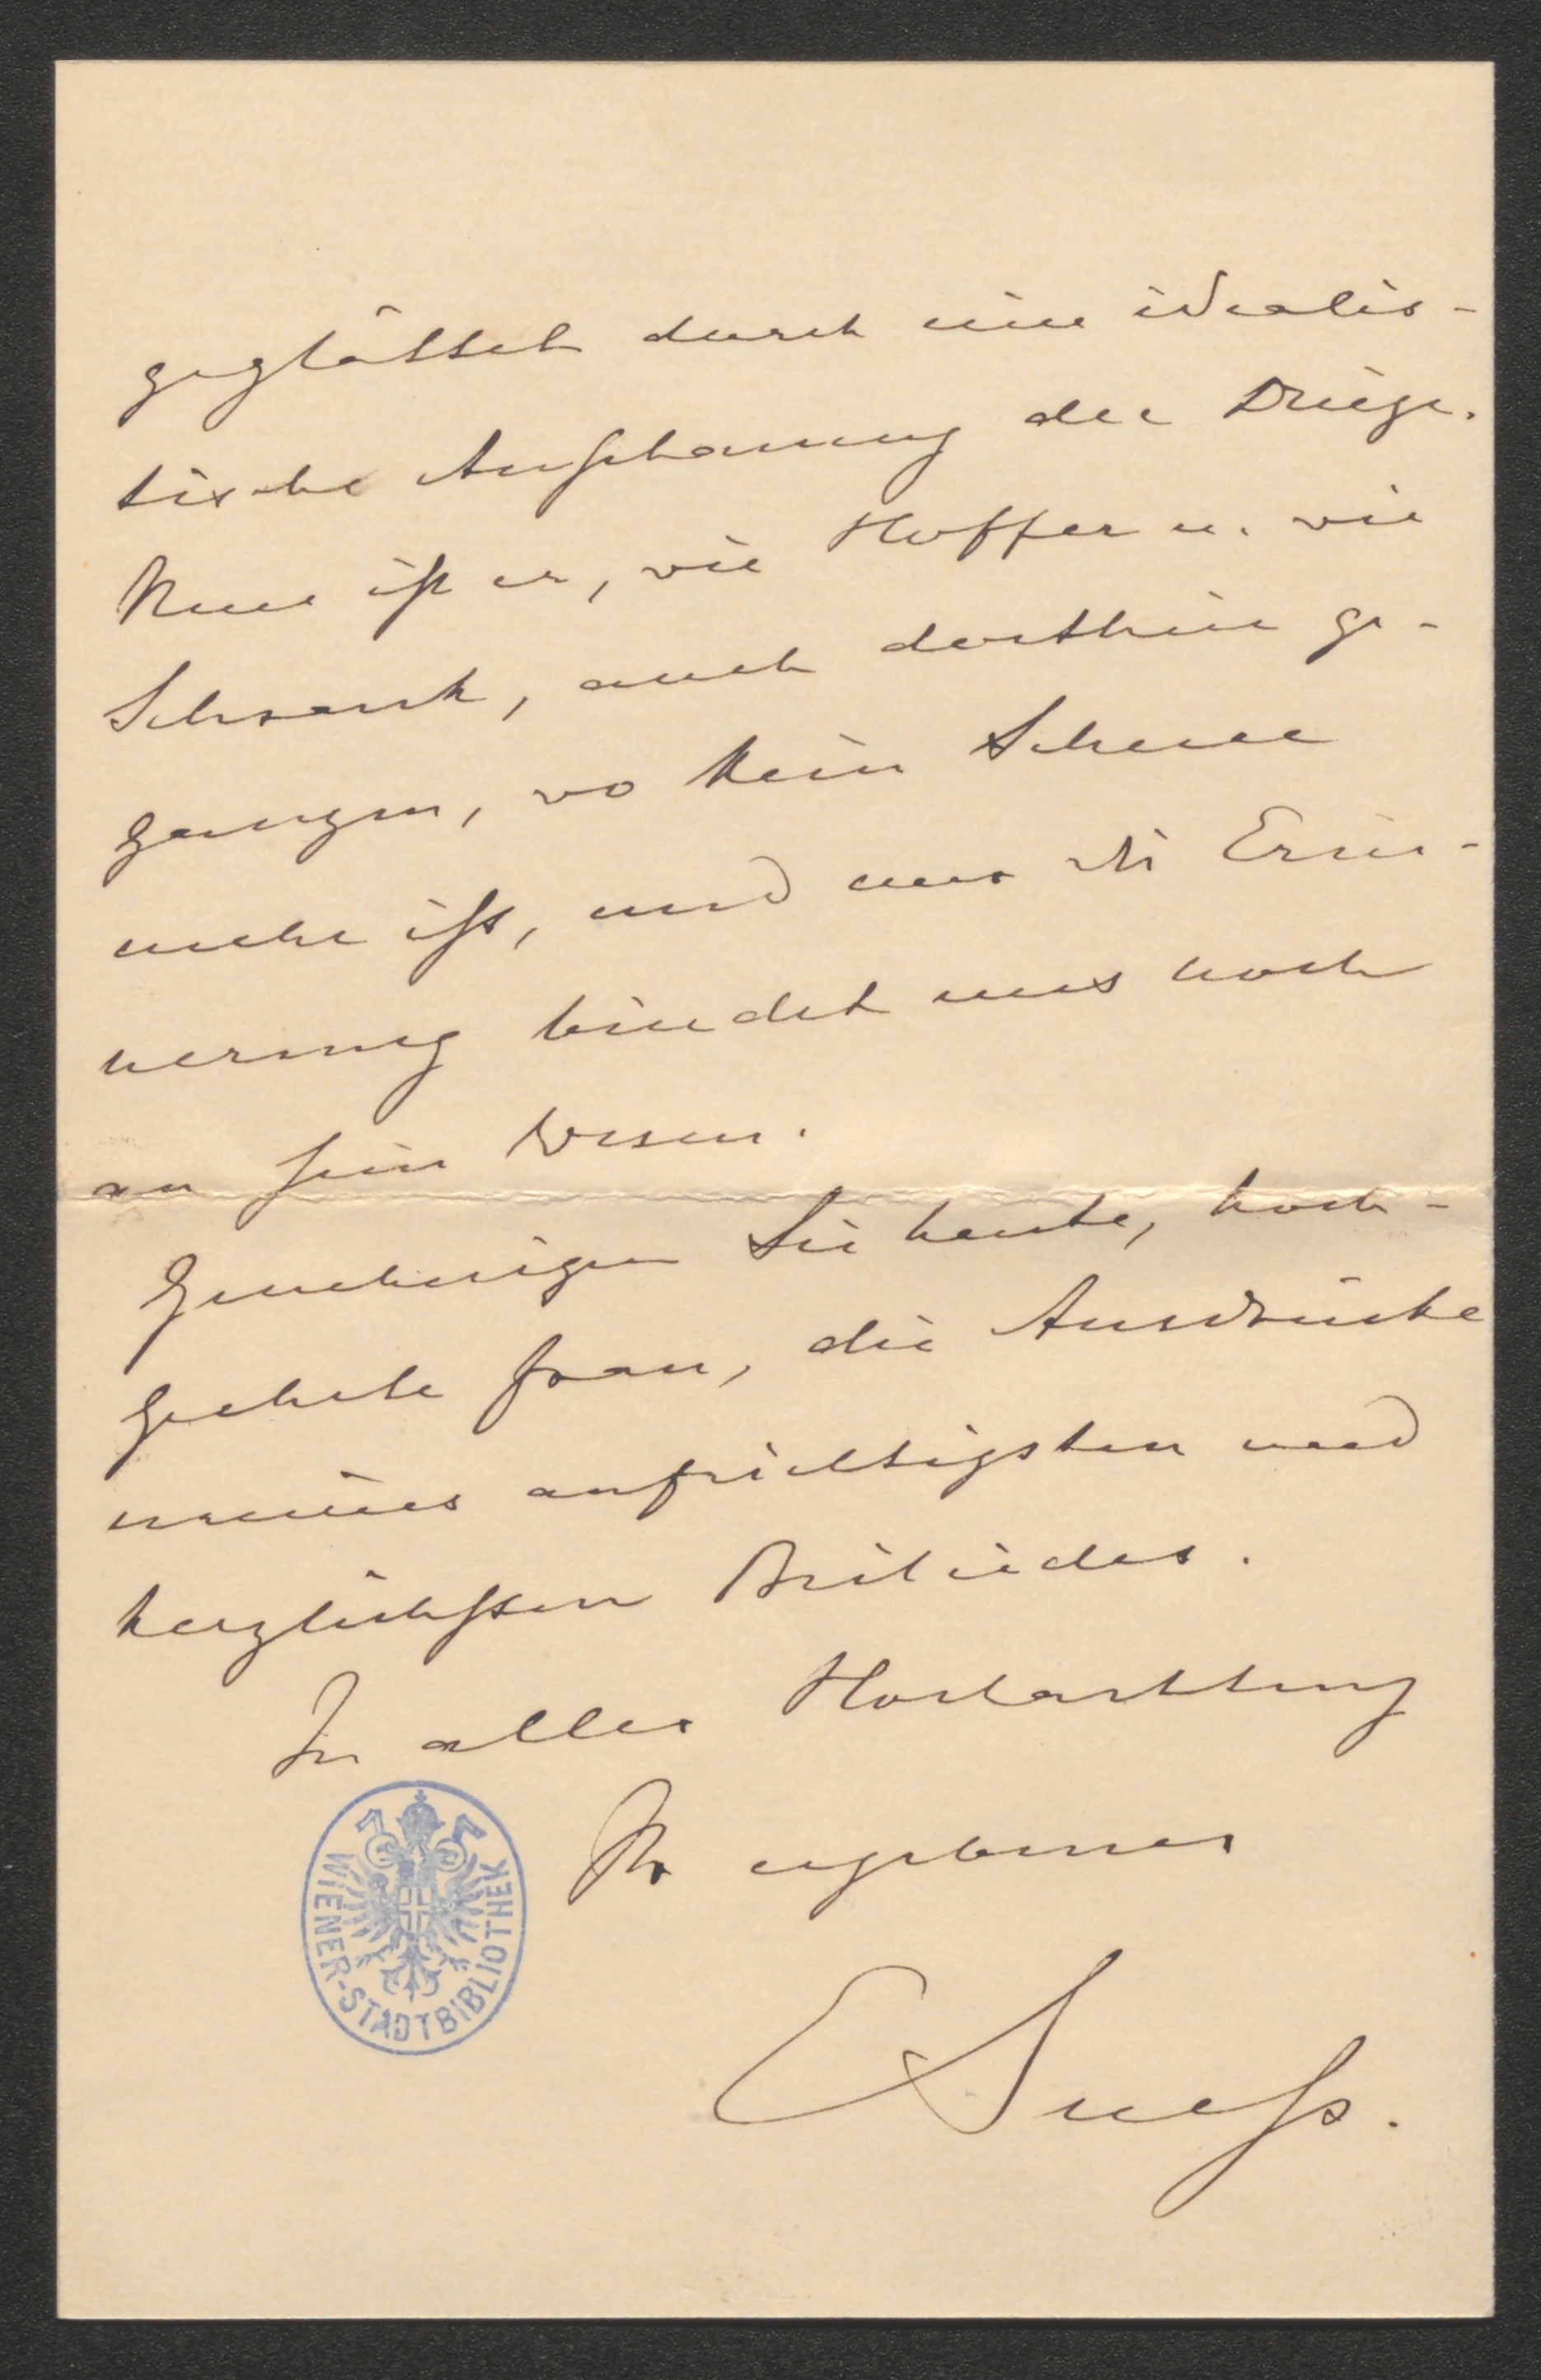 geglättet durch eine idealis-
tische Anschauung der Dinge.
Nun ist er, wie Hoffer u. wie
Schrank, auch dorthin ge-
gangen, wo kein Schnee
mehr ist, und nur die Erin-
nerung bindet uns noch
an sein Wesen.
Genehmigen Sie heute, hoch-
geehrte Frau, die Ausdrücke
meines aufrichtigsten und
herzlichsten Beileides.
In aller Hochachtung
Ihr ergebener
ESuess.
WIENER-STADTBIBLIOTHEK